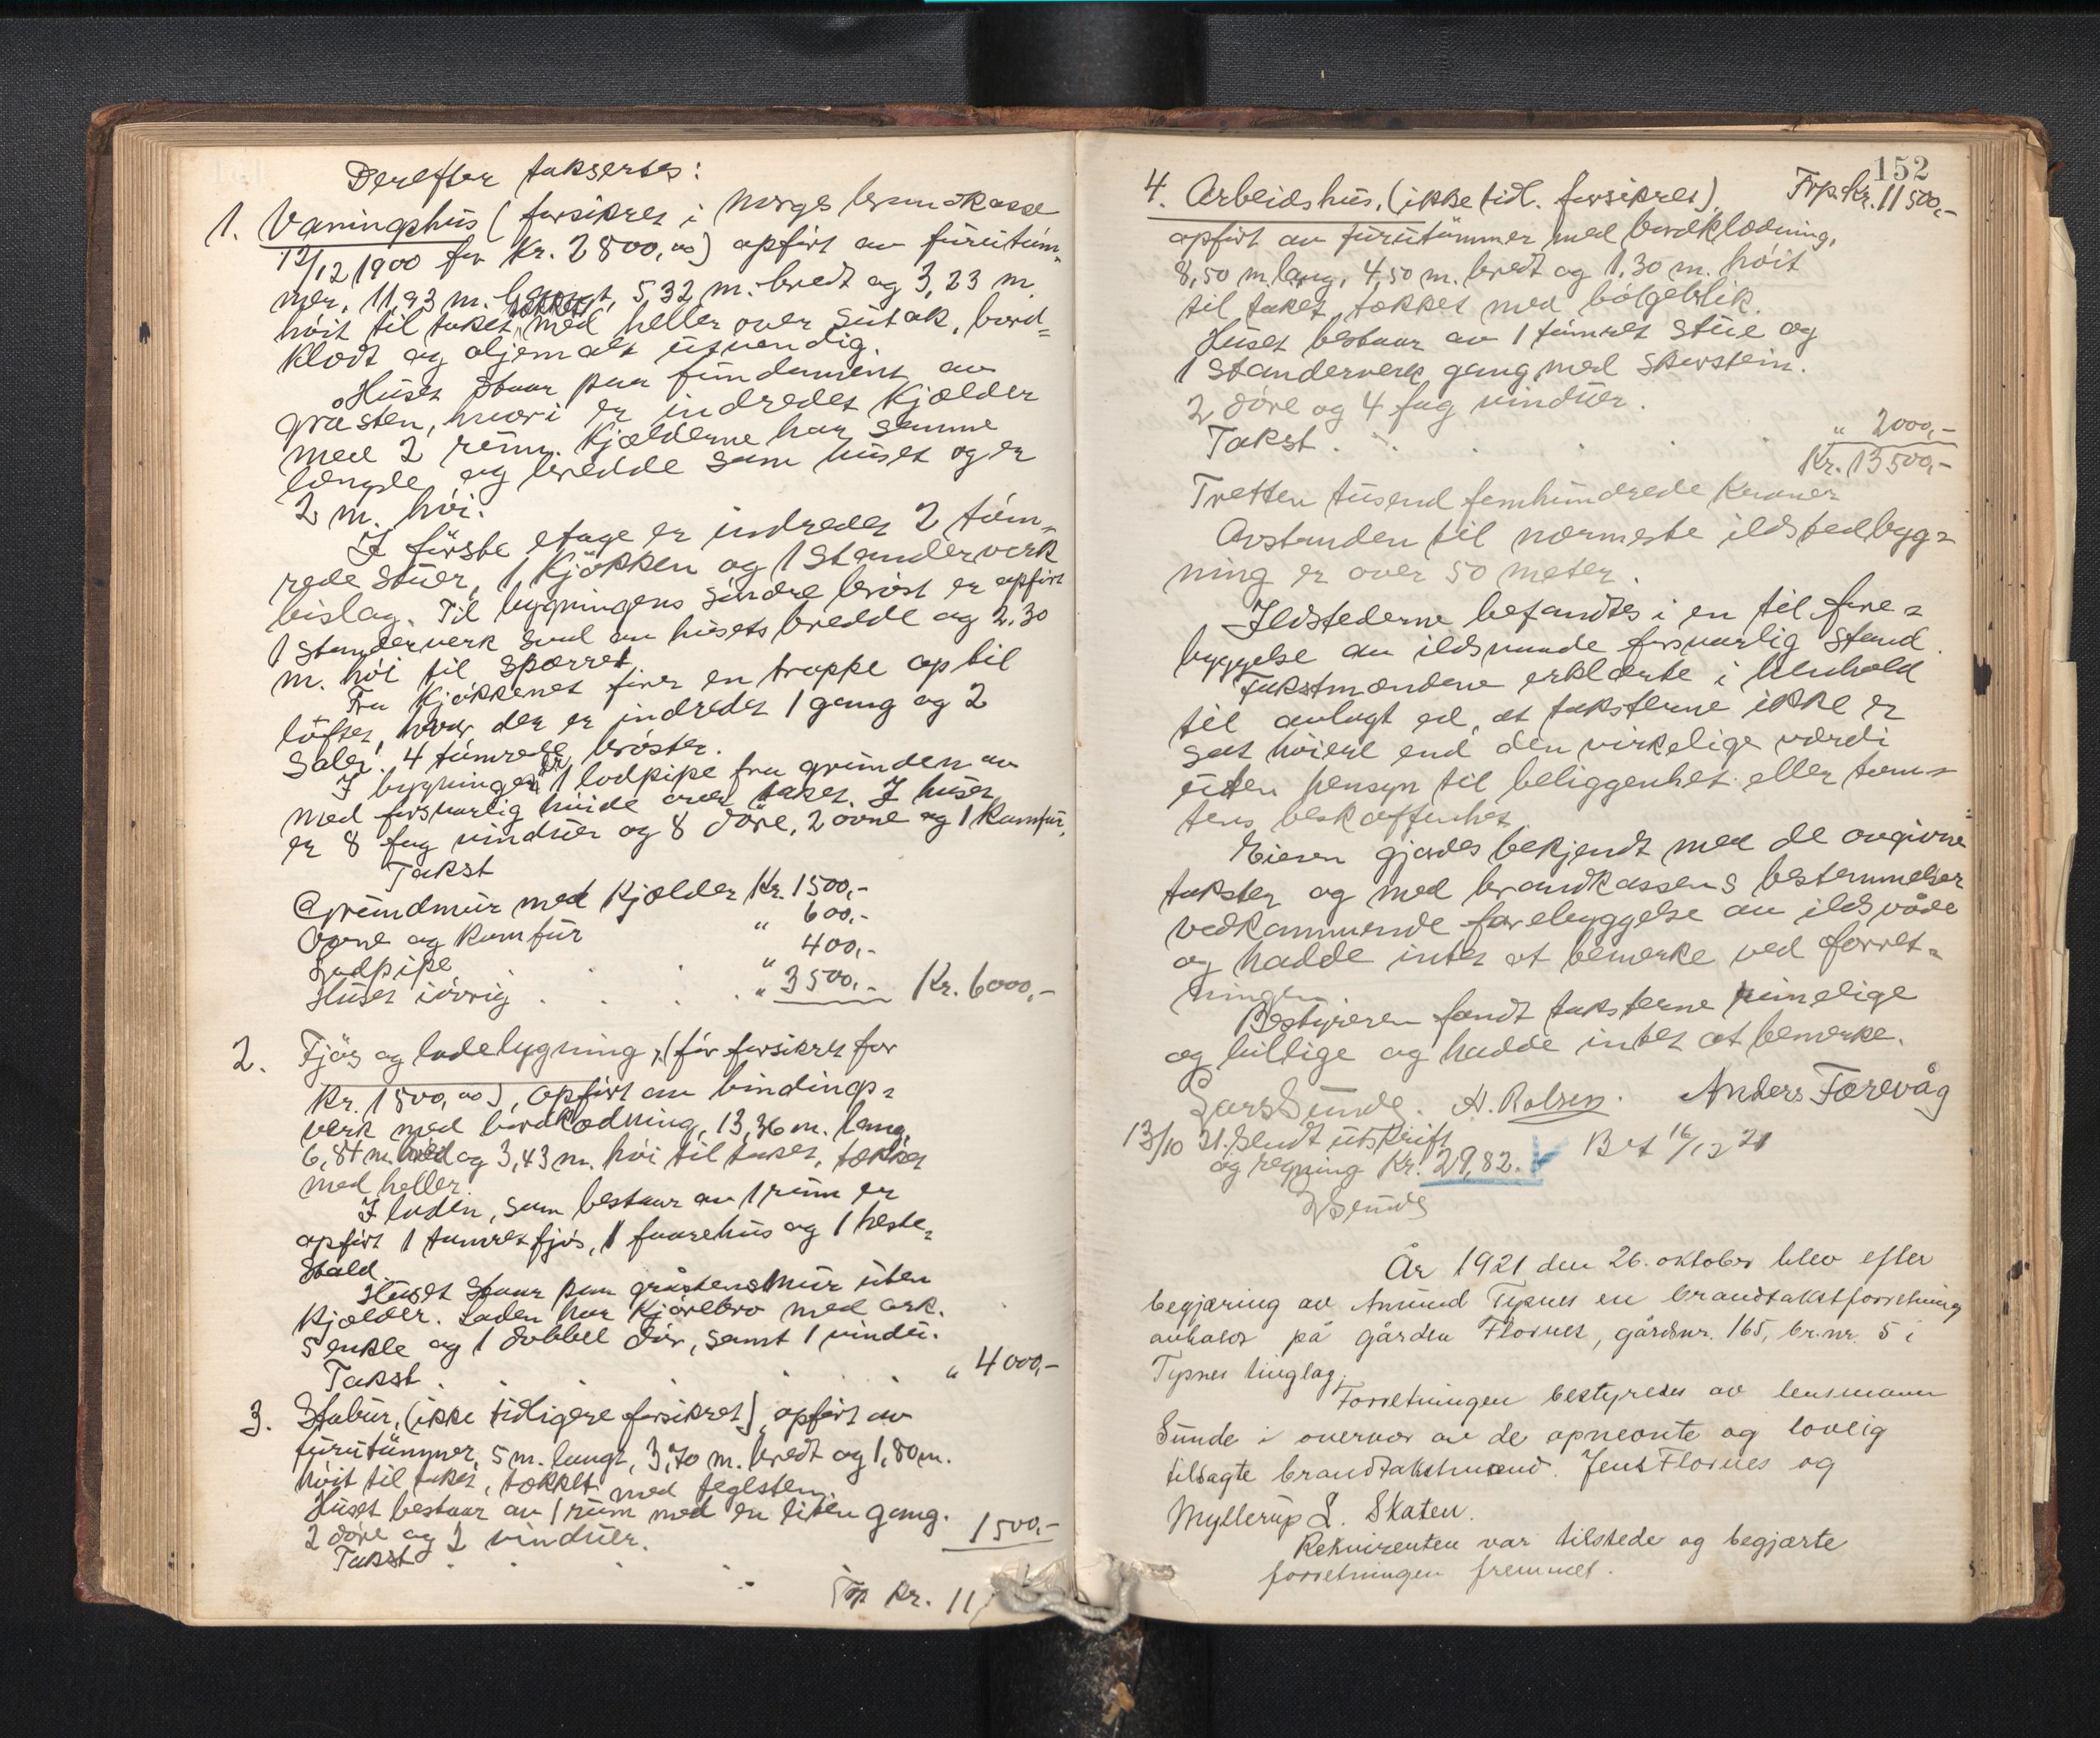 Derefter takseres:
1. Vaningshus (forsikret i Norges brandkasse
12/12 1900 for Kr. 2800,00) opført av furutøm-
mer, 11,93 m. langt, 5,32 m. bredt og 3,23 m.
høit til taket, tækket med heller over sutak, bord=
klædt og oljemalt utvendig.
Huset staar paa fundament av
graasten, hvori er indredet Kjælder
med 2 rum. Kjælderne har samme
længde og bredde som huset og er
2 m. høi.
I første etage er indredet 2 tøm-
rede stuer, 1 Kjøkken og 1 standerverk
bislag. Til bygningens søndre brøst er opført
1 standerverk sval av husets bredde og 2,30
m. høi til spærret.
Fra Kjøkkenet fører en trappe op til
løftet, hvor der er indredet 1 gang og 2
saler. 4 tømrede brøster.
I bygningen er 1 lodpipe fra grunden av
med forsvarlig høide over taket. I huset
er 8 fag vinduer og 8 døre, 2 ovne og 1 Komfur.
Takst
Grundmur med Kjælder Kr. 1500,-
Ovne og Komfur " 600,-
Lodpipe " 400,-
Huset iøvrig . . . . " 3500,- Kr. 6000,-
2. Fjøs og ladebygning, (før forsikret for
Kr. 1500,00), opført av bindings=
verk med bordklædning, 13,36 m. lang,
6,84 m. bred og 3,43 m. høi til taket, tækket
med heller.
I laden, som bestaar av 1 rum er
opført 1 tømret fjøs, 1 faarehus og 1 heste-
stald.
Huset staar paa gråstensmur uten
Kjælder. Laden har Kjørebro med ark.
5 enkle og 1 dobbel dør, samt 1 vindu.
Takst . . . . . " 4000,-
3. Stabur, (ikke tidligere forsikret) opført av
furutømmer, 5 m. langt, 3,70 m. bredt og 1,80 m.
høit til taket, tækket med teglsten.
Huset bestaar av 1 rum med en liten gang.
2 døre og 2 vinduer.
Takst . . . 1500,-
Trp Kr. 11
152
4. Arbeidshus, (ikke tidl. forsikret) Trp. Kr. 11500,-
opført av furutømmer med bordklædning,
8,50 m. lang, 4,50 m. bredt og 1,30 m. høit
til taket, tækket med bølgeblik.
Huset bestaar av 1 tømret stue og
1 standerverk gang med skorstein.
2 døre og 4 fag vinduer.
Takst . . . . " 2000,-
Kr. 13500,-
Tretten tusend femhundrede Kroner
Avstanden til nærmeste ildstedbyg=
ning er over 50 meter.
Ildstederne befandtes i en til fore=
byggelse av ildsvaade forsvarlig stand.
Takstmændene erklærte i henhold
til avlagt ed, at taksterne ikke er
sat høiere end den virkelige værdi
uten hensyn til beliggenhet eller tom=
tens beskaffenhet.
Eieren gjordes bekjendt med de avgivne
takster og med brandkassens bestemmelser
vedkommende forebyggelse av ildsvåde
og hadde intet at bemerke ved forret=
ningen.
Bestyreren fandt taksterne rimelige
og billige og hadde intet at bemerke.
Lars Sunde. A. Rolsen. Anders Færevåg
13/10 21. Sendt utskrift
og regning Kr. 29,82. Bet 16/12 21
LSunde
År 1921 den 26. oktober blev efter
begjæring av Amund Typnes en brandtakstforretning
avholdt på gården Flornes, gårdsnr. 165, br.nr. 5 i
Typnes tinglag.
Forretningen bestyredes av lensmann
Sunde i overvær av de opnevnte og lovlig
tilsagte brandtakstmænd. Jens Flornes og
Myllerup L. Skaten.
Rekvirenten var tilstede og begjærte
forretningen fremmet.